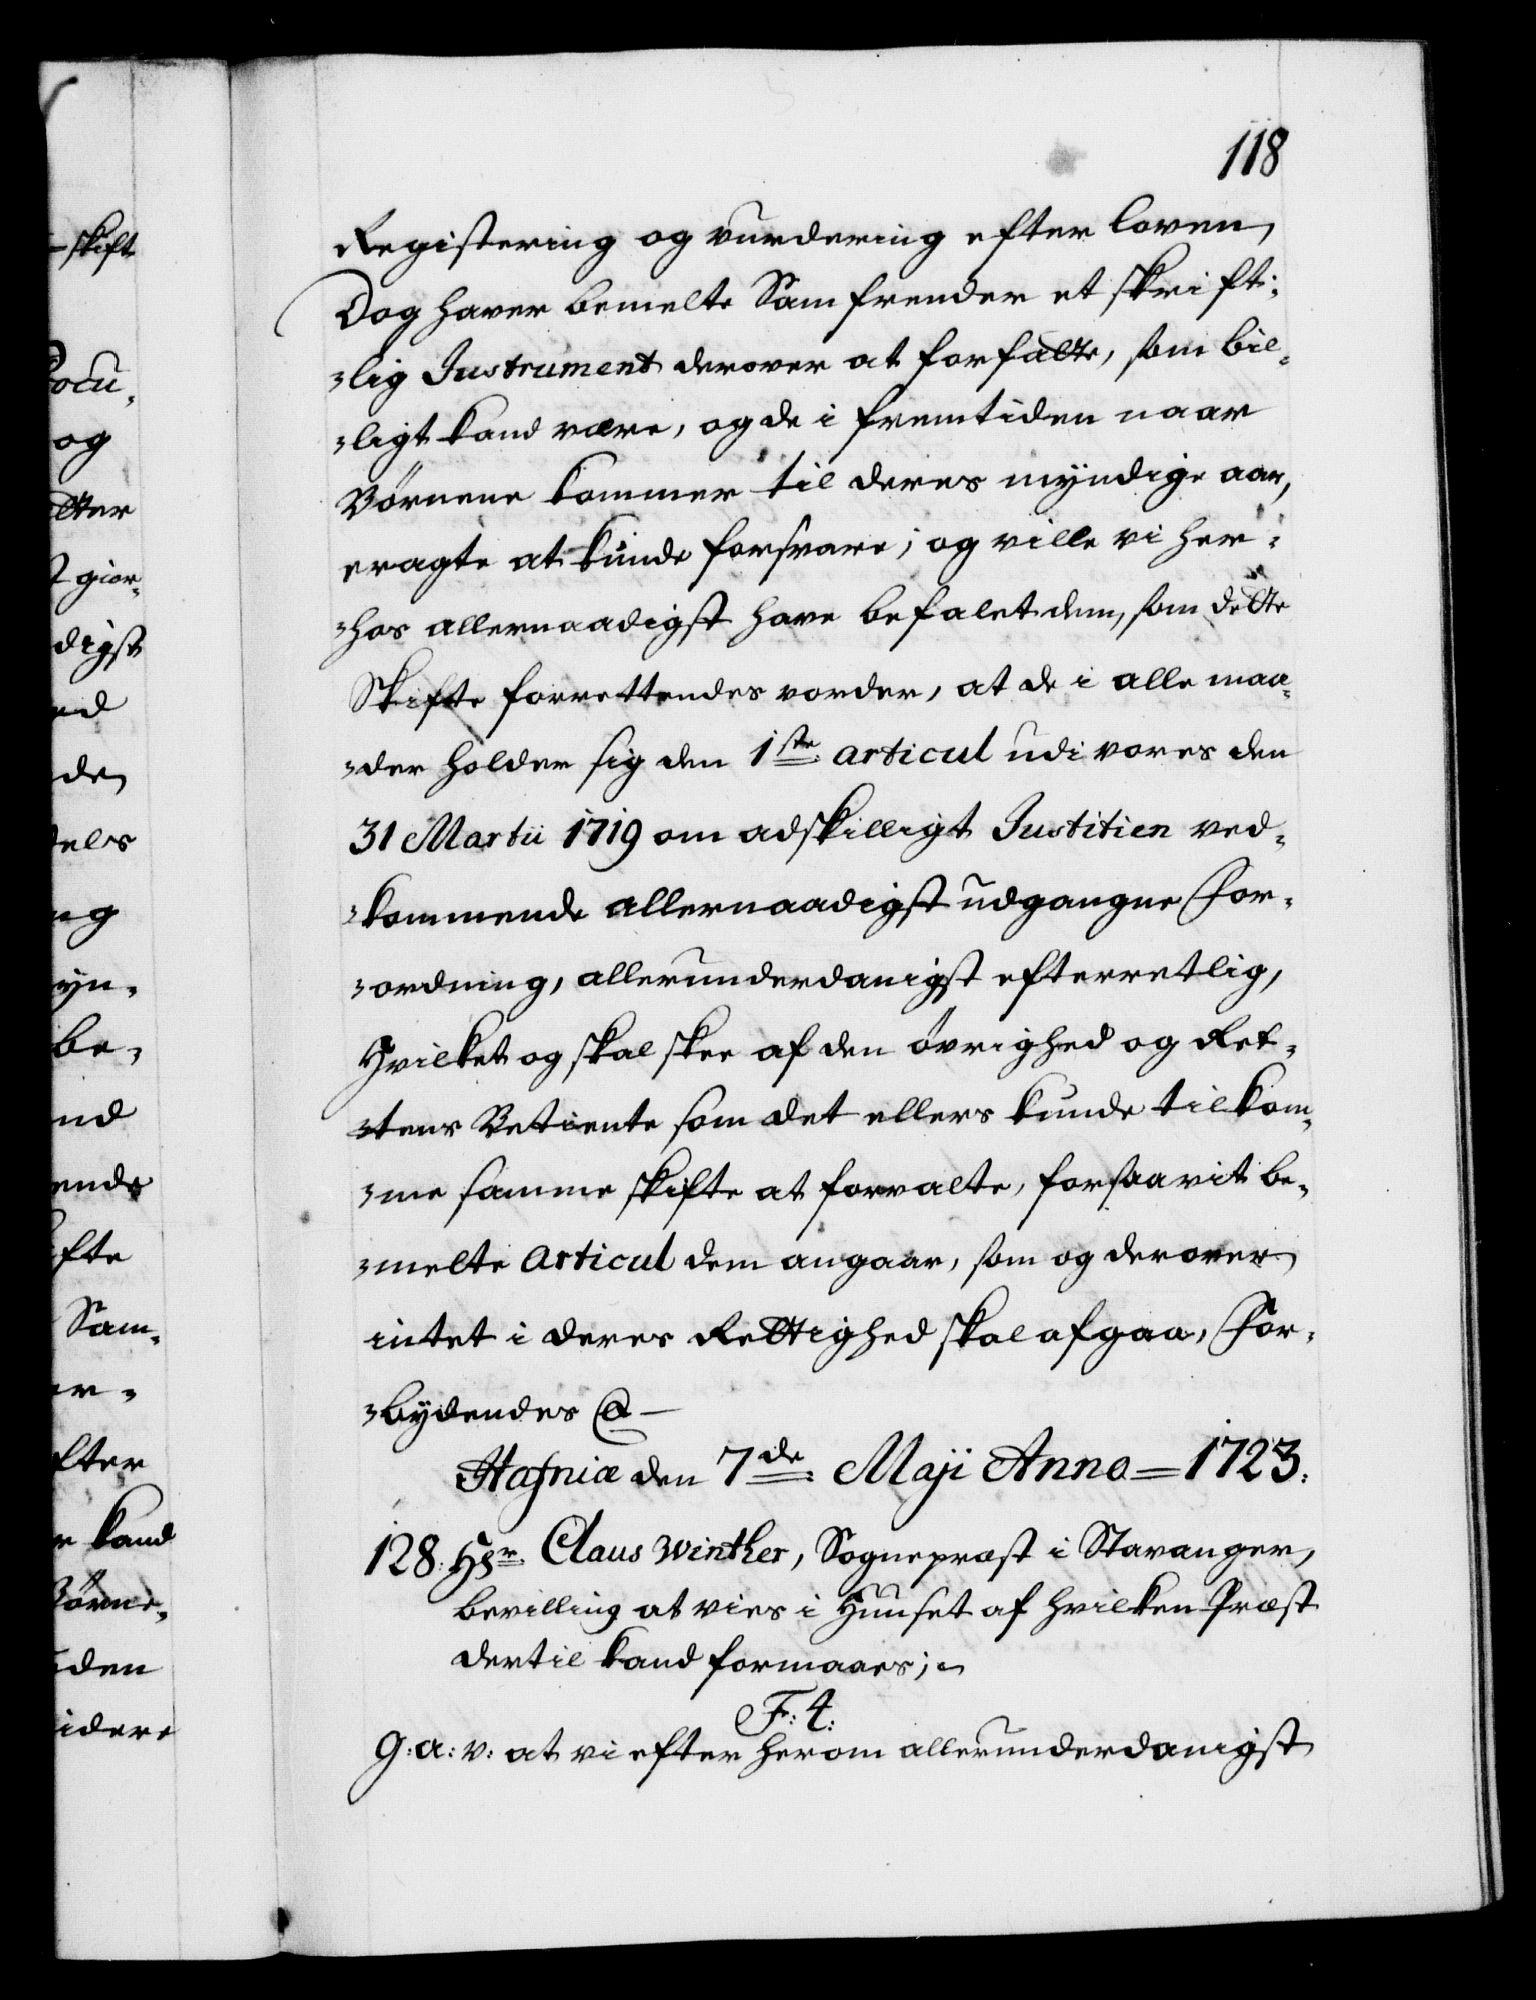 118
Registering og vurdering efter loven,
Dog haver bemelte Samfrender et skrift-
-lig Instrument derover at forfatte, som bil-
-ligt kand være, og de i fremtiden naar
Børnene kommer til deres myndige aar,
eragte at kunde forsvare; og ville vi her-
-hos allernaadigst have befalet dem, som dette
Skifte forrettendes vorder, at de i alle maa-
-der holder sig den 1ste articul udi vores den
31 Martii 1719 om adskilligt Justitien ved-
-kommende allernaadigst udgangne For-
-ordning, allerunderdanigst efterretlig,
Hvilket og skal skee af den øvrighed og Ret-
-tens Betiente som det ellers kunde tilkom-
-me samme skifte at forvalte, forsaavit be-
-melte articul dem angaar, som og derover
intet i deres Rettighed skal afgaa, For-
-bydendes @
Hafniæ den 7de Maji Anno = 1723.
128. Hr. Claus Winther, Sognepræst i Stavanger,
bevilling at vies i Huuset af hvilken Præst
dertil kand formaaes;
F: 4:
G: a: v: at vi efter herom allerunderdanigst
skift
ocu-
og
tter
t gior-
digst
ed
den
dels
ng
yn-
be-
nd
ende
fte
Sam-
er-
fter
r kand
Børne-
den
idere